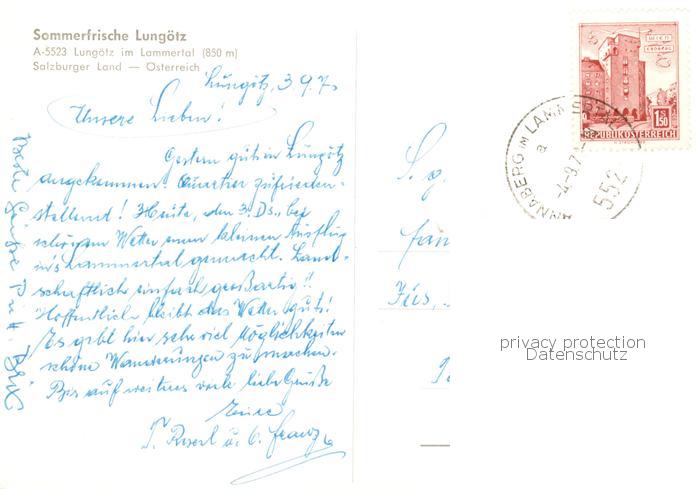 Sommerfrische Lungötz
A-5523 Lungötz im Lammertal (850 m)
Salzburger Land — Österreich
Lungötz, 3.9.7
Unsere Lieben!
Gestern gut in Lungötz
angekommen! Quartier zufrieden-
stellend! Heute, den 3. Ds., bei
schönem Wetter einen kleinen Ausflug
in's Lammertal gemacht. Land-
schaftlich einfach großartig!!
Hoffentlich bleibt das Wetter gut!
Es gibt hier sehr viel Möglichkeiten
schöne Wanderungen zu machen.
Bis auf weiteres viele liebe Grüße
Eure
T. Roserl u. O. Franz
Beste Grüße
S. g.
Fam
WIEN
ERDBERG
1.50
REPUBLIK ÖSTERREICH
ANNABERG IM LAMM
a
-4.-9.7
552
privacy protection
Datenschutz